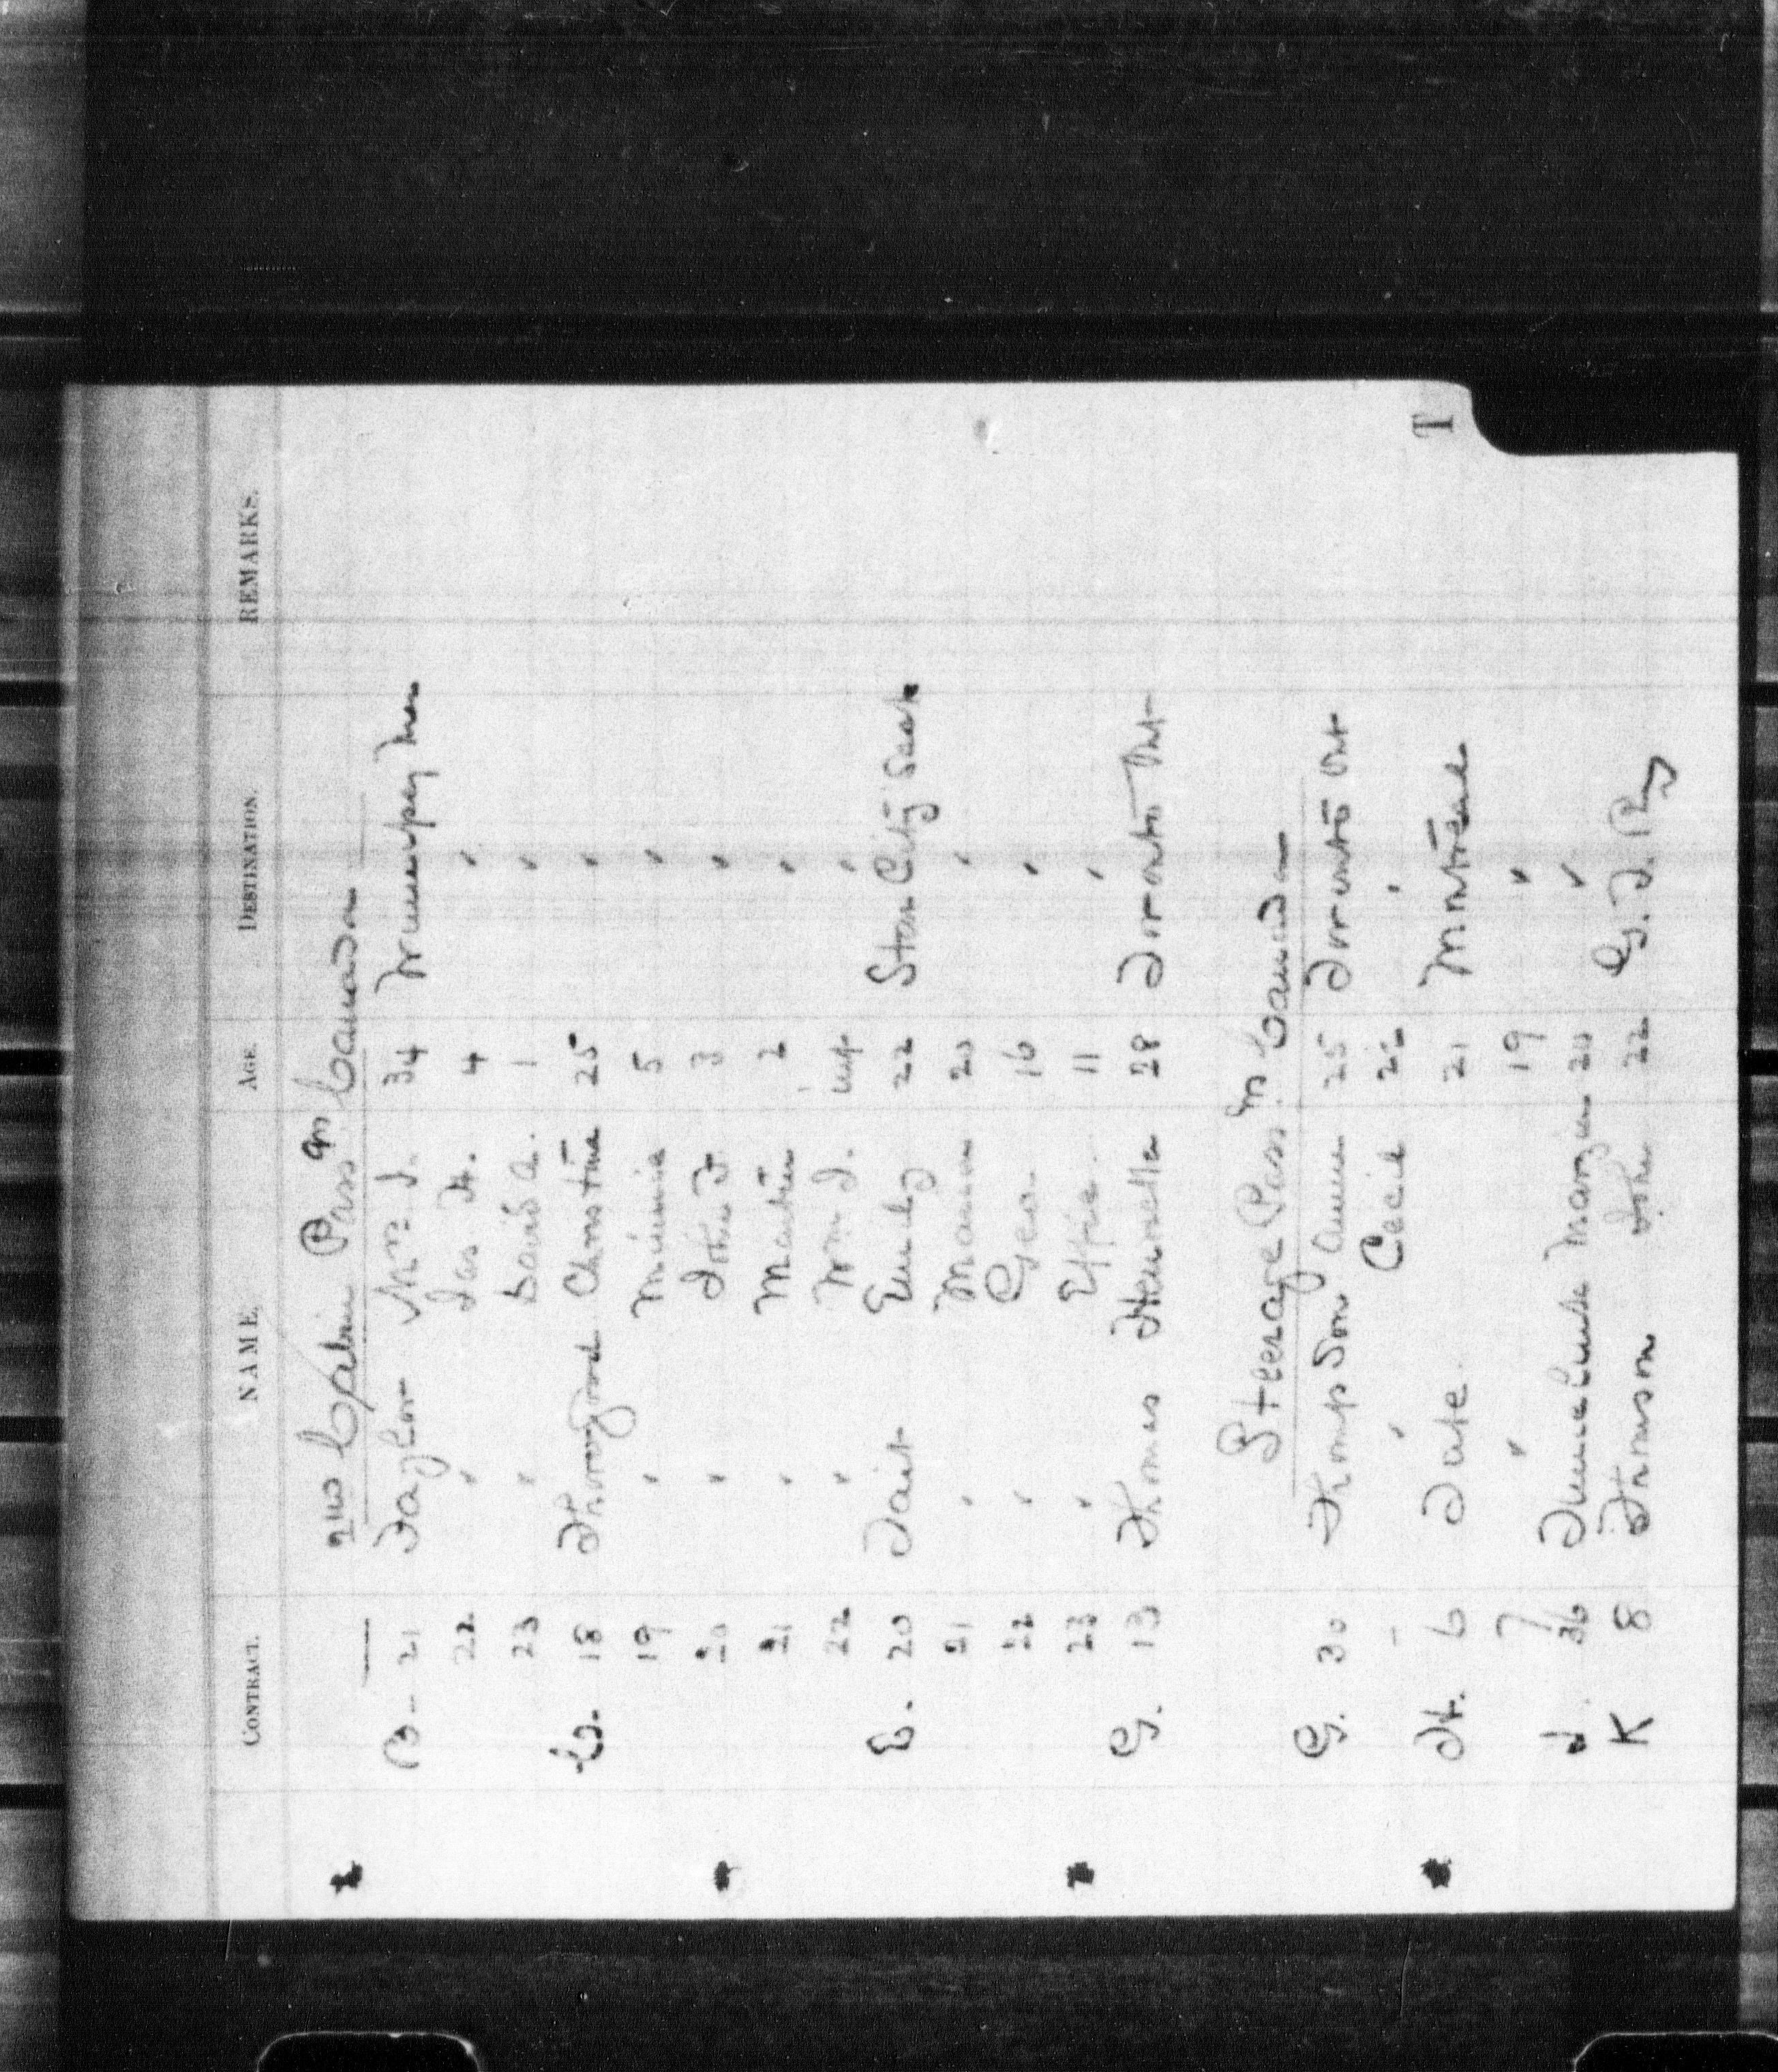 CONTRACT. NAME. AGE. DESTINATION. REMARKS.
2nd Cabin Pass grs Canada
B - 21 Taylor Mrs. J. 34 Winnipeg Man
22 " Jas H. 4 "
23 " David A. 1 "
C. 18 Thorogood Christina 25 "
19 " Minnie 5 "
20 " John F 3 "
21 " Martin 2 "
22 " Wm J. inf "
E. 20 Tait Emily 22 Star City Sask
21 " 20 "
22 " Geo. 16 "
23 " Effie. 11 "
G. 13 Thomas Henrietta 28 Toronto Ont
Steerage Pass grs Canada
G. 30 Thompson Annie 25 Toronto Ont
- " Cecil "
H. 6 Tate 21 Montreal
7 " 19 "
36 20 "
K 8 Thomson John 22 G. T. Ry
T